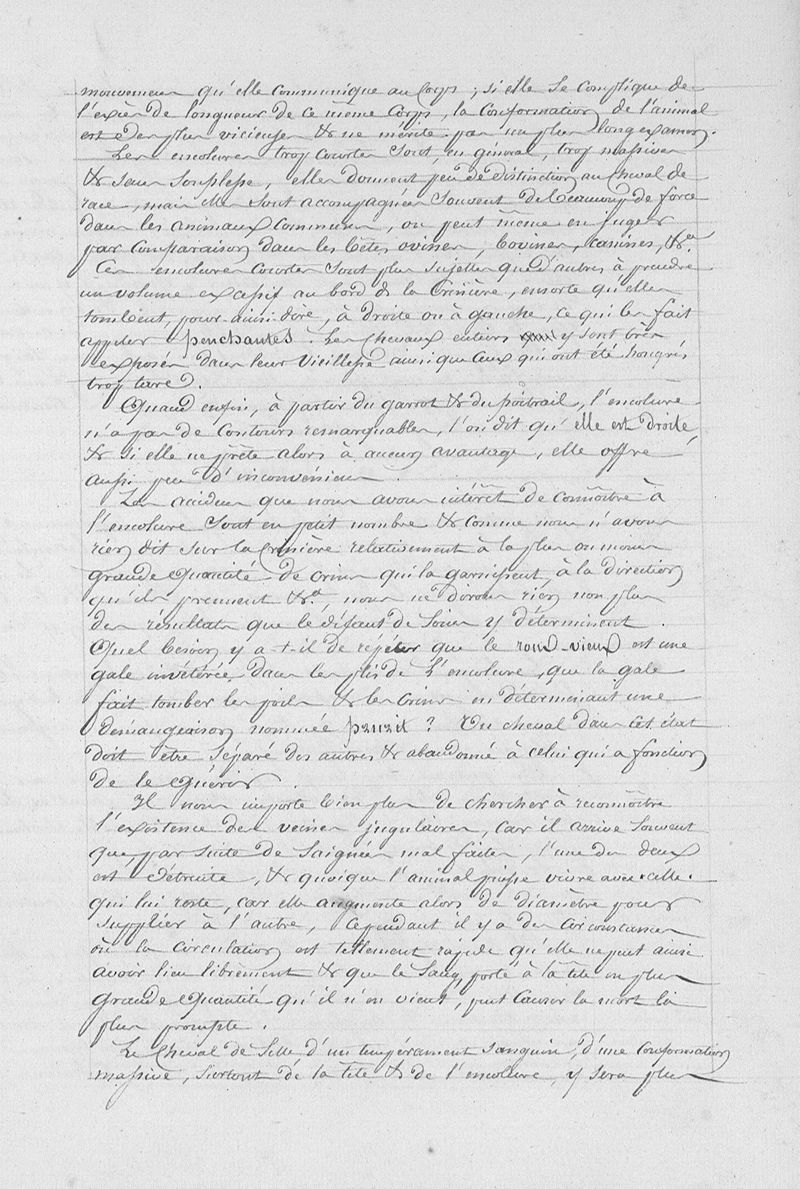 mouvemens qu'elle communique au Corps ; si elle se complique de
l'excès de longueur de ce même Corps, la Conformation de l'animal
est des plus vicieuses & ne mérite pas un plus long examen.
Les encolures trop courtes sont, en général, trop massives
& sans souplesse, elles donnent peu de distinction au cheval de
race, mais elles sont accompagnées souvent de beaucoup de force
dans les animaux communs, on peut même en juger
par comparaison dans les bêtes ovines, bovines, canines, &a.
Ces encolures courtes sont plus sujettes que d'autres à prendre
un volume excessif au bord de la Crinière, ensorte qu'elles
tombent, pour ainsi dire, à droite ou à gauche, ce qui les fait
appeler penchantes. Les chevaux entiers y sont très
exposés dans leur vieillesse ainsi que ceux qui ont été hongrés
trop tard.
Quand enfin, à partir du garrot & du poitrail, l'encolure
n'a pas de contours remarquables, l'on dit qu'elle est droite
& si elle ne prête alors à aucun avantage, elle offre
aussi peu d'inconvéniens.
Les accidens que nous avons intérêt de connaître à
l'encolure sont en petit nombre & comme nous n'avons
rien dit sur la Crinière relativement à la plus ou moins
grande quantité de crins qui la garnissent, à la direction
qu'ils prennent &a, nous ne dirons rien non plus
des résultats que le défaut de soins y déterminent.
Quel besoin y a-t-il de répéter que le roux-vieux est une
gale invétérée dans les plis de l'encolure, que la gale
fait tomber les poils & les crins en déterminant une
démangeaison nommée prurit ? Un cheval dans cet état
doit être séparé des autres & abandonné à celui qui a fonction
de le guérir.
Il nous importe bien plus de chercher à reconnaître
l'existence des veines jugulaires, car il arrive souvent
que, par suite de saignées mal faites, l'une des deux
est détruite, & quoique l'animal puisse vivre avec celle
qui lui reste, car elle augmente alors de diamètre pour
suppléer à l'autre, cependant il y a des circonstances
où la circulation est tellement rapide qu'elle ne peut ainsi
avoir lieu librement & que le sang, porté à la tête en plus
grande quantité qu'il n'en vient, peut causer la mort la
plus prompte.
Le cheval de selle d'un tempérament sanguin, d'une conformation
massive, surtout de la tête & de l'encolure, y sera plus